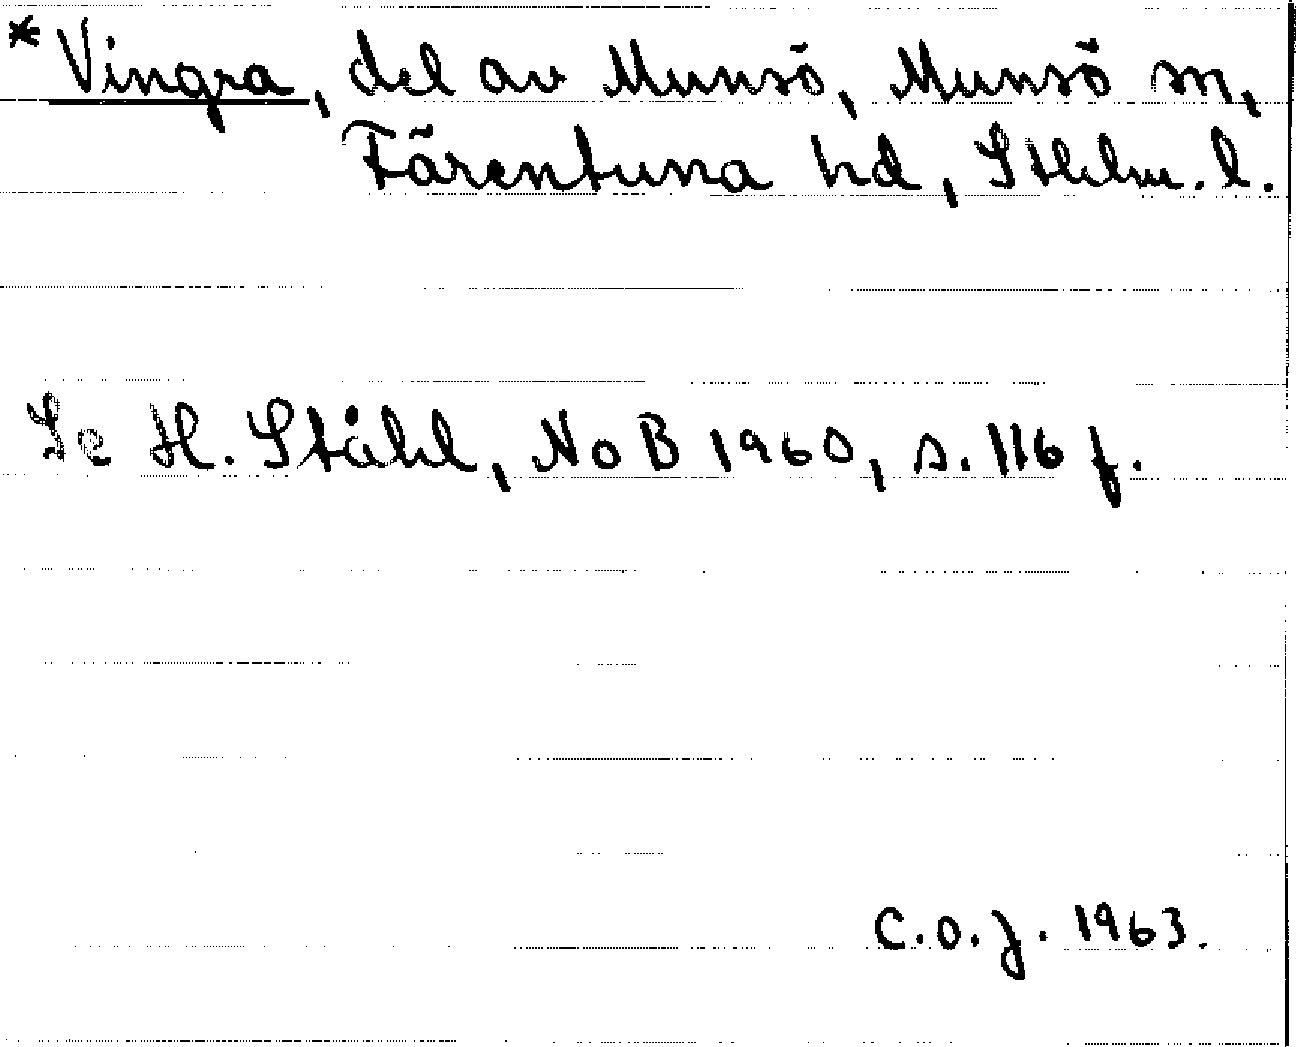 * Vingra, del av Munsö, Munsö sn,
Färentuna hd, Sthlm. l.
Se H. Ståhl, NoB 1960, s. 116 f.
C.O.J. 1963.